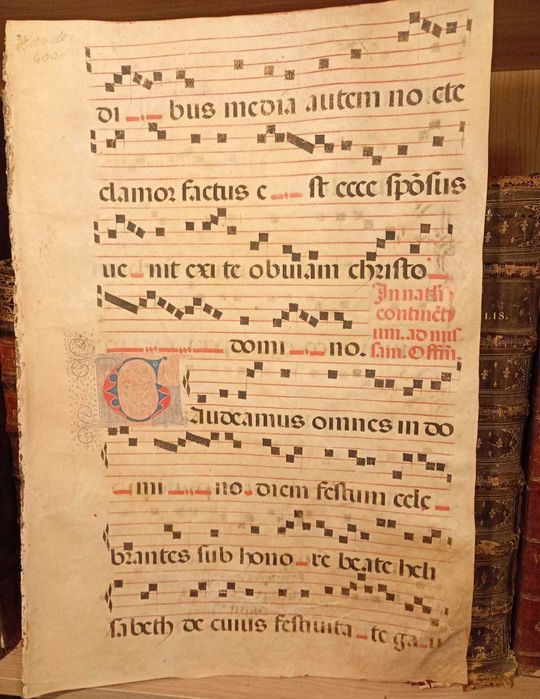 400-
di bus media autem no cte
clamor factus e st ecce spōsus
ue nit exi te obuiam christo
In natli
continēti
um. ad mis
sam. Offm.
domi no.
Gaudeamus omnes in do
mi no. diem festum cele
brantes sub hono re beate heli
sabeth de cuius festiuita te ga u
LIS.